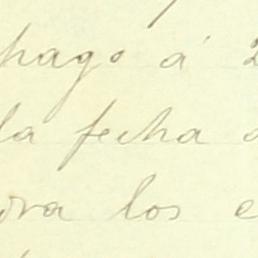 hago á 2
la fecha
ora los e